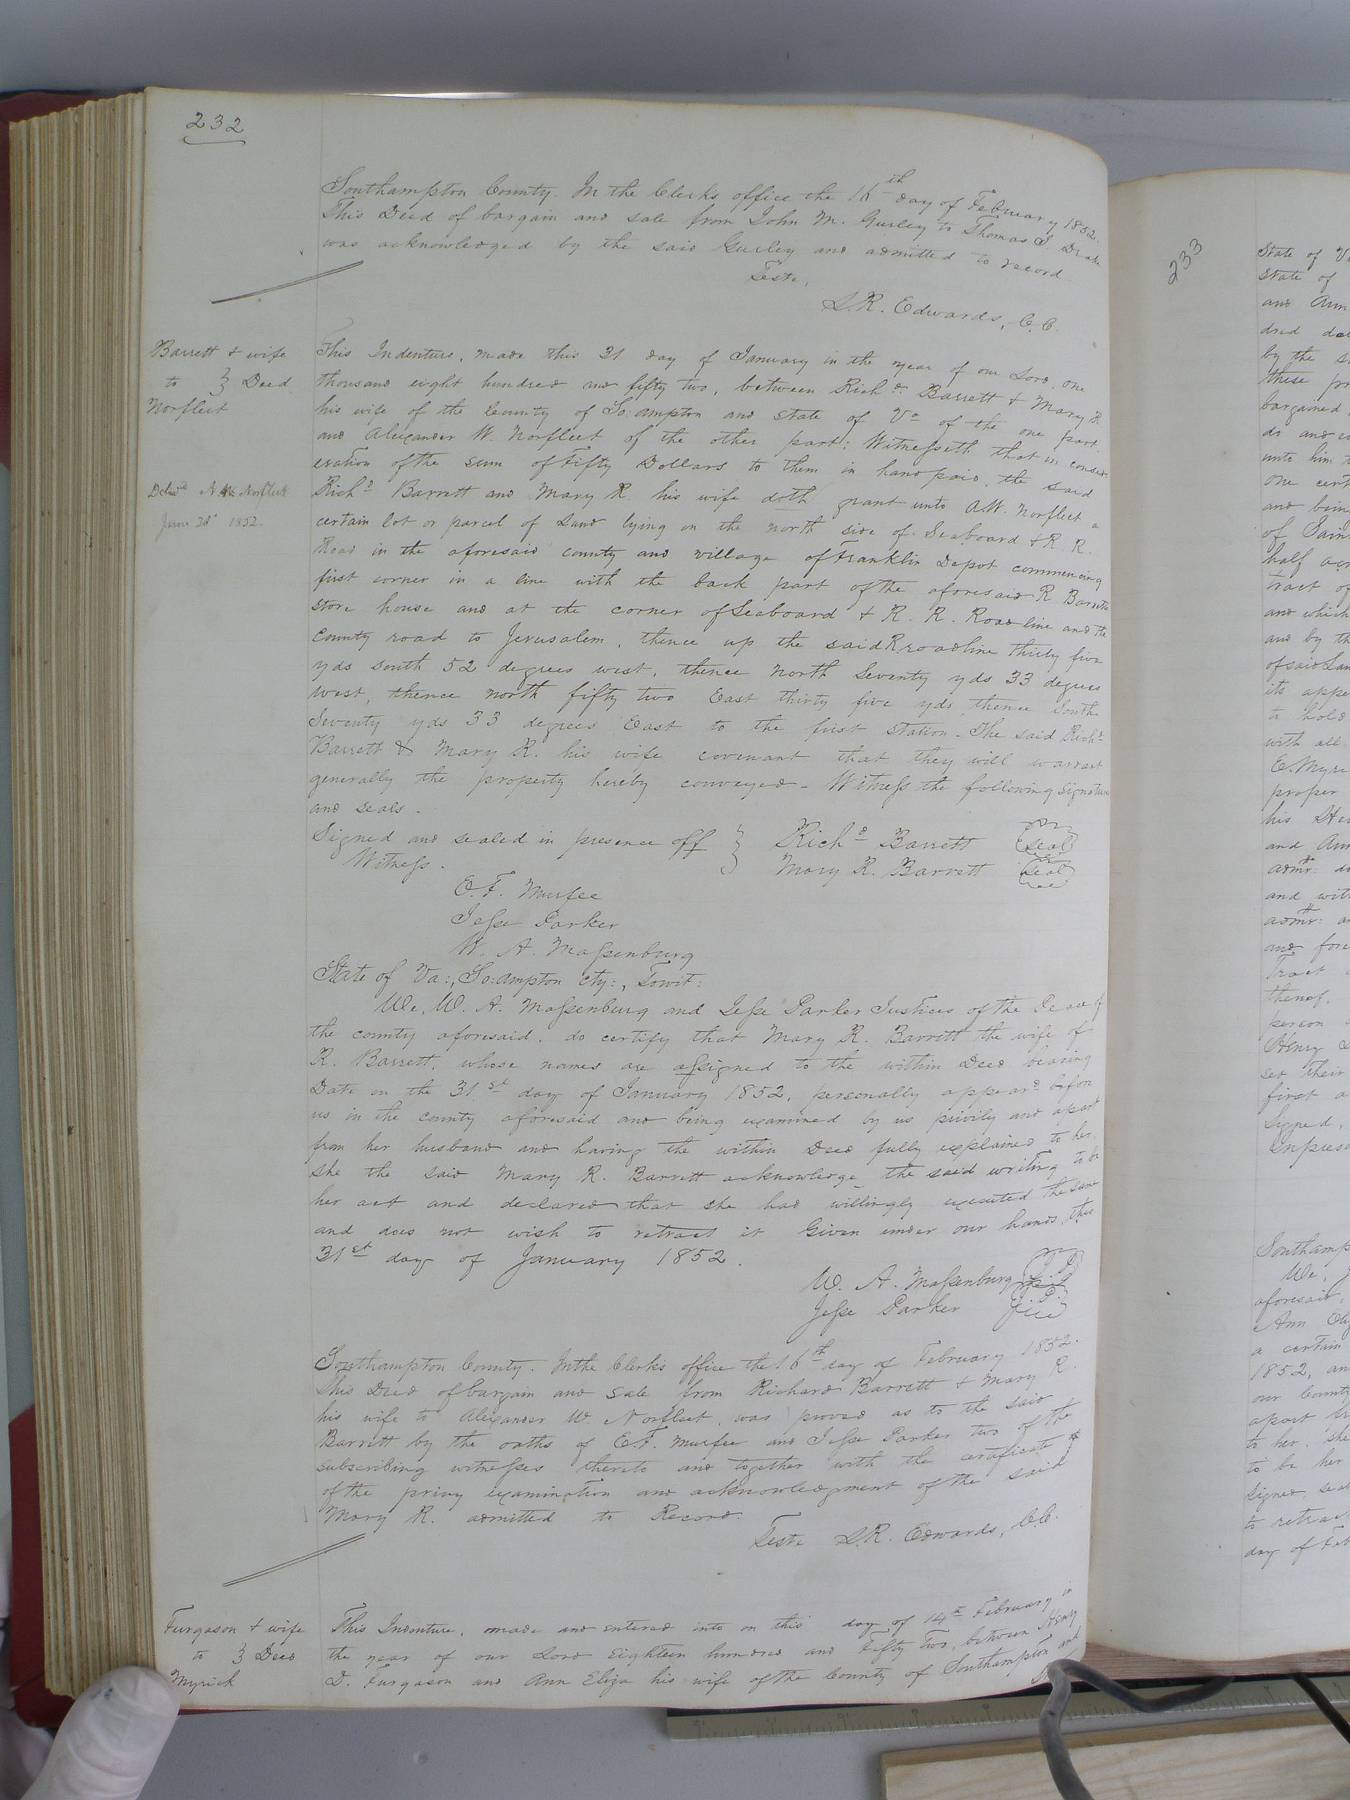 232
Southampton County. In the Clerks office the 16th day of February 1852.
This Deed of bargain and sale from John M. Gurley to Thomas J. Drake
was acknowledged by the said Gurley and admitted to record
Teste,
L.R. Edwards, C.C.
Barrett & wife
to } Deed
Norfleet
This Indenture, made this 31 day of January in the year of our Lord, one
thousand eight hundred and fifty two, between Richd. Barrett & Mary R.
his wife of the County of So:ampton and state of Va of the one part
and Alexander W. Norfleet of the other part; Witnesseth that in consid-
eration of the sum of Fifty Dollars to them in hand paid, the said
Delivd A. W. Norfleet
June 28 1852.
Richd Barrett and Mary R. his wife doth grant unto A.W. Norfleet a
certain lot or parcel of Land lying on the north side of Seaboard & R. R.
Road in the aforesaid county and village of Franklin Depot commencing
first corner in a line with the back part of the aforesaid R Barretts
store house and at the corner of Seaboard & R. R. Road line and the
County road to Jerusalem, thence up the said R road line thirty five
yds south 52 degrees west, thence north Seventy yds 33 degrees
west, thence north fifty two East thirty five yds, thence South
Seventy yds 33 degrees East to the first Station. The said Richd
Barrett & Mary R. his wife covenant that they will warrant
generally the property hereby conveyed - Witness the following signatures
and seals.
Signed and sealed in presence off } Richd Barrett (seal)
Witness. Mary R. Barrett (seal)
E. F. Murfee
Jesse Parker
W. A. Massenburg
State of Va:, So:ampton cty:, Towit:
We, W. A. Massenburg and Jesse Parker Justices of the Peace of
the county aforesaid, do certify that Mary R. Barrett the wife of
R. Barrett, whose names are assigned to the within Deed bearing
Date on the 31st day of January 1852, personally appeard before
us in the county aforesaid and being examined by us privily and apart
from her husband and having the within Deed fully explained to her,
she the said Mary R. Barrett acknowledge the said writing to be
her act and declared that she had willingly executed the same
and does not wish to retract it Given under our hands this
31st day of January 1852.
W. A. Massenburg
Jesse Parker
Southampton County. In the Clerk's office the 16th day of February 1852.
This Deed of bargain and sale from Richard Barrett & Mary R.
his wife to Alexander W. Norfleet, was proved as to the said
Barrett by the oaths of E.F. Murfee and Jesse Parker two of the
subscribing witnesses thereto and together with the certificate of
of the privy examination and acknowledgment of the said
Mary R. admitted to Record.
Teste L.R. Edwards, C.C.
Furgason & wife
to } Deed
Myrick
This Indenture, made and entered into on this day of 14th February in
the year of our Lord Eighteen hundred and Fifty Two, between Henry
D. Furgason and Ann Eliza his wife of the County of Southampton and
233
State of
State of
and Ann
by the
these
bargained
unto him
one
and
of
half
Tract of
and which
and by
of said
its
to hold
with all
proper
his
and
and with
and
Tract
thereof,
person
Henry
set their
first
Signed,
We,
aforesaid,
a certain
1852,
our County
apart
to her, she
to be her
to
day of